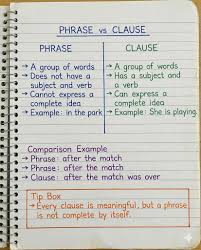 PHRASE vs CLAUSE
PHRASE
→ A group of words
→ Does not have a subject and verb
→ Cannot express a complete idea
→ Example: in the park
CLAUSE
→ A group of words
→ Has a subject and a verb
→ Can express a complete idea
→ Example: She is playing.
Comparison Example
→ Phrase: after the match
→ Phrase: after the match
→ Clause: after the match was over
Tip Box
→ Every clause is meaningful, but a phrase
is not complete by itself.